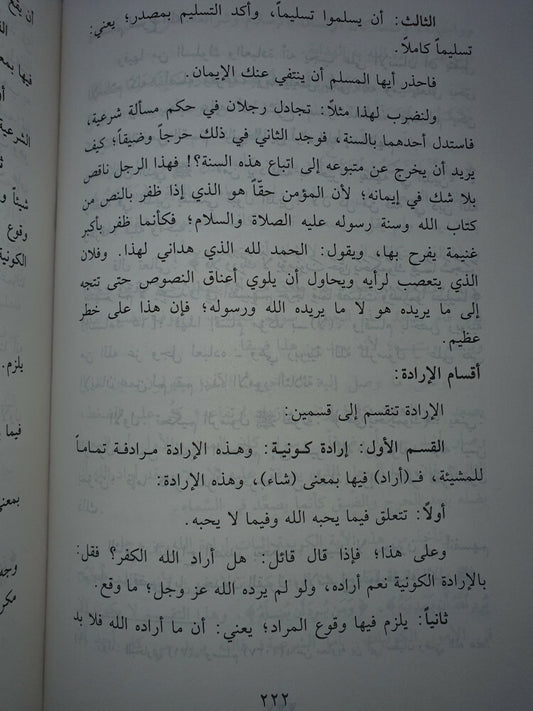 الثالث: أن يسلموا تسليماً، وأكد التسليم بمصدر؛ يعني:
تسليماً كاملاً.
فاحذر أيها المسلم أن ينتفي عنك الإيمان.
ولنضرب لهذا مثلاً: تجادل رجلان في حكم مسألة شرعية،
فاستدل أحدهما بالسنة، فوجد الثاني في ذلك حرجاً وضيقاً؛ كيف
يريد أن يخرج عن متبوعه إلى اتباع هذه السنة؟! فهذا الرجل ناقص
بلا شك في إيمانه؛ لأن المؤمن حقاً هو الذي إذا ظفر بالنص من
كتاب الله وسنة رسوله عليه الصلاة والسلام؛ فكأنما ظفر بأكبر
غنيمة يفرح بها، ويقول: الحمد لله الذي هداني لهذا. وفلان
الذي يتعصب لرأيه ويحاول أن يلوي أعناق النصوص حتى تتجه
إلى ما يريده هو لا ما يريده الله ورسوله؛ فإن هذا على خطر
عظيم.
أقسام الإرادة:
الإرادة تنقسم إلى قسمين:
القسم الأول: إرادة كونية: وهذه الإرادة مرادفة تماماً
للمشيئة، فـ(أراد) فيها بمعنى (شاء)، وهذه الإرادة:
أولاً: تتعلق فيما يحبه الله وفيما لا يحبه.
وعلى هذا؛ فإذا قال قائل: هل أراد الله الكفر؟ فقل:
بالإرادة الكونية نعم أراده، ولو لم يرده الله عز وجل؛ ما وقع.
ثانياً: يلزم فيها وقوع المراد؛ يعني: أن ما أراده الله فلا بد
٢٢٢